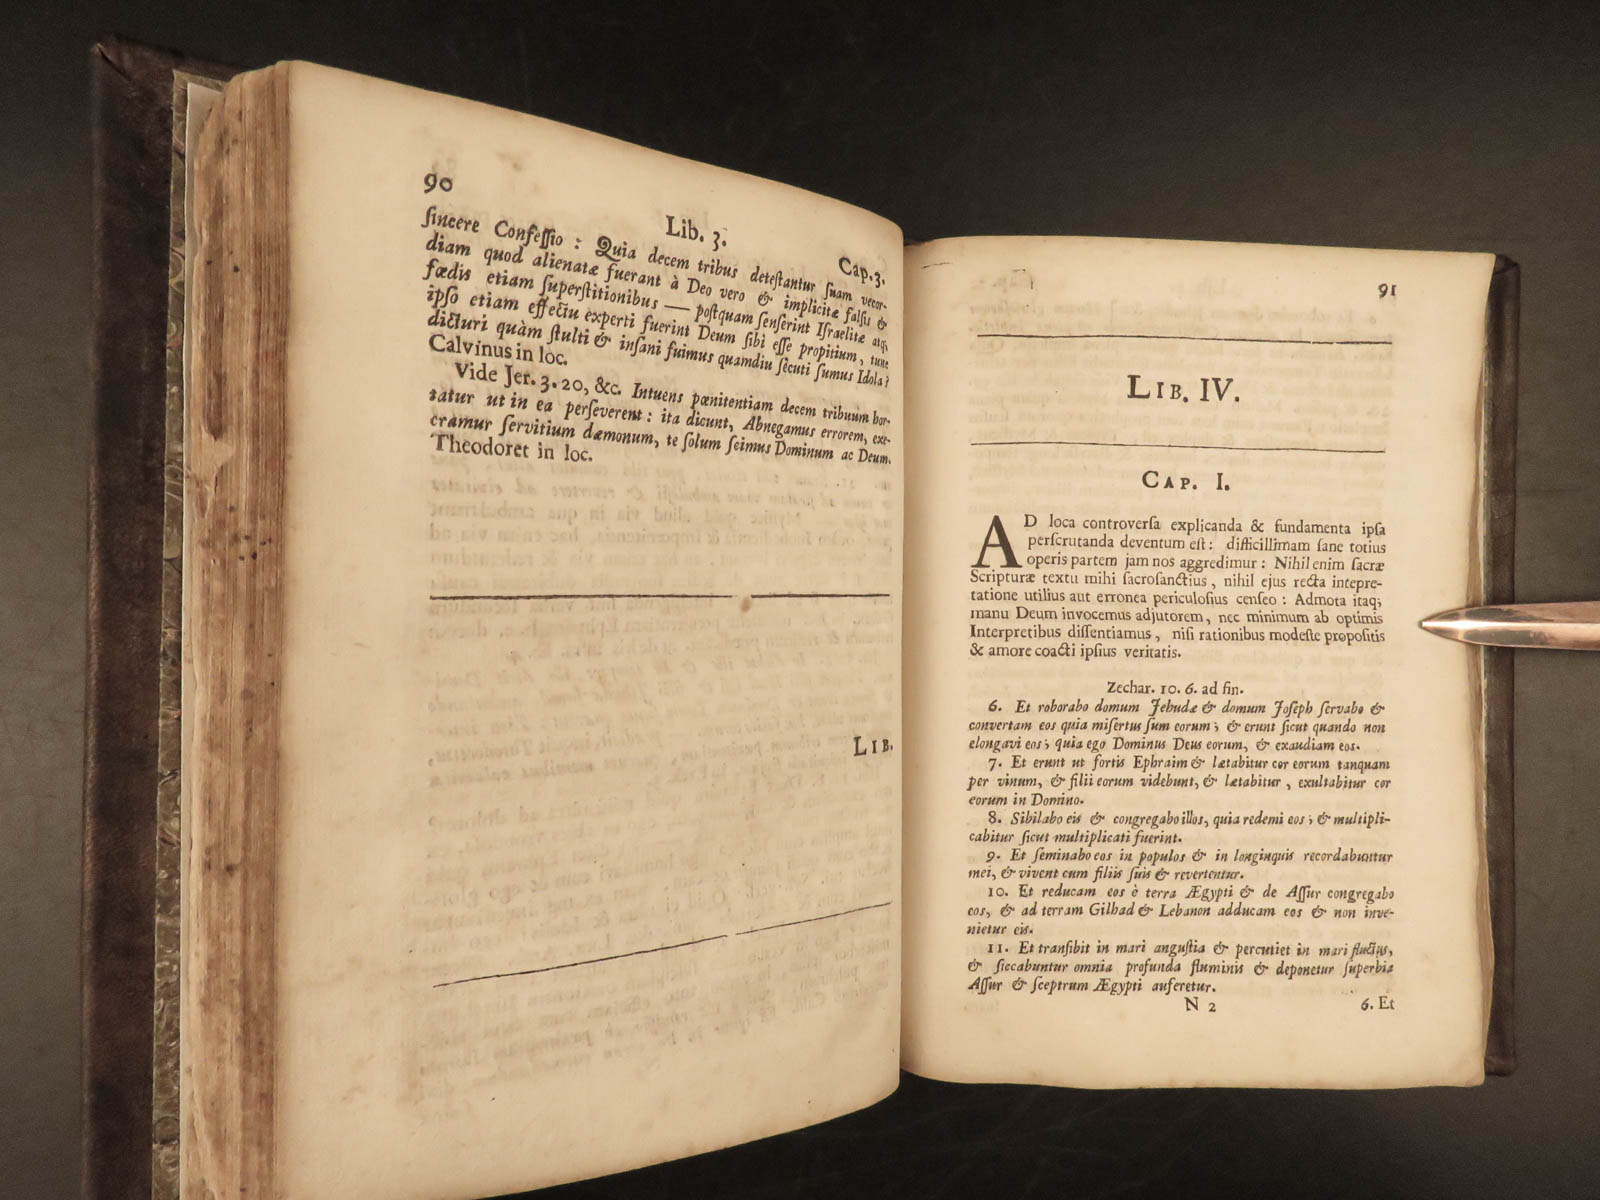 90
Lib. 3.
Cap. 3.
ſincere Confeſſio : Quia decem tribus deteſtantur ſuam vecor-
diam quod alienatæ fuerant à Deo vero & implicitæ falſis &
fœdis etiam ſuperſtitionibus — poſtquam ſenſerint Iſraelitæ atq;
ipſo etiam effectu experti fuerint Deum ſibi eſſe propitium, tunc
dicturi quàm ſtulti & inſani fuimus quamdiu ſecuti ſumus Idola?
Calvinus in loc.
Vide Jer. 3. 20, &c. Intuens pœnitentiam decem tribuum hor-
tatur ut in ea perſeverent : ita dicunt, Abnegamus errorem, exe-
cramur ſervitium dæmonum, te ſolum ſcimus Dominum ac Deum.
Theodoret in loc.
LIB.
91
LIB. IV.
CAP. I.
AD loca controverſa explicanda & fundamenta ipſa
perſcrutanda deventum eſt : difficillimam ſane totius
operis partem jam nos aggredimur : Nihil enim ſacræ
Scripturæ textu mihi ſacroſanctius, nihil ejus recta intepre-
tatione utilius aut erronea periculoſius cenſeo : Admota itaq;
manu Deum invocemus adjutorem, nec minimum ab optimis
Interpretibus diſſentiamus, niſi rationibus modeſte propoſitis
& amore coacti ipſius veritatis.
Zechar. 10. 6. ad fin.
6. Et roborabo domum Jehudæ & domum Joſeph ſervabo &
convertam eos quia miſertus ſum eorum ; & erunt ſicut quando non
elongavi eos ; quia ego Dominus Deus eorum, & exaudiam eos.
7. Et erunt ut fortis Ephraim & lætabitur cor eorum tanquam
per vinum, & filii eorum videbunt, & lætabitur, exultabitur cor
eorum in Domino.
8. Sibilabo eis & congregabo illos, quia redemi eos ; & multipli-
cabitur ſicut multiplicati fuerint.
9. Et ſeminabo eos in populos & in longinquis recordabuntur
mei, & vivent cum filiis ſuis & revertentur.
10. Et reducam eos è terra Ægypti & de Aſſur congregabo
eos, & ad terram Gilhad & Lebanon adducam eos & non inve-
nietur eis.
11. Et tranſibit in mari anguſtia & percutiet in mari fluctus,
& ſiccabuntur omnia profunda fluminis & deponetur ſuperbia
Aſſur & ſceptrum Ægypti auferetur.
N 2
6. Et